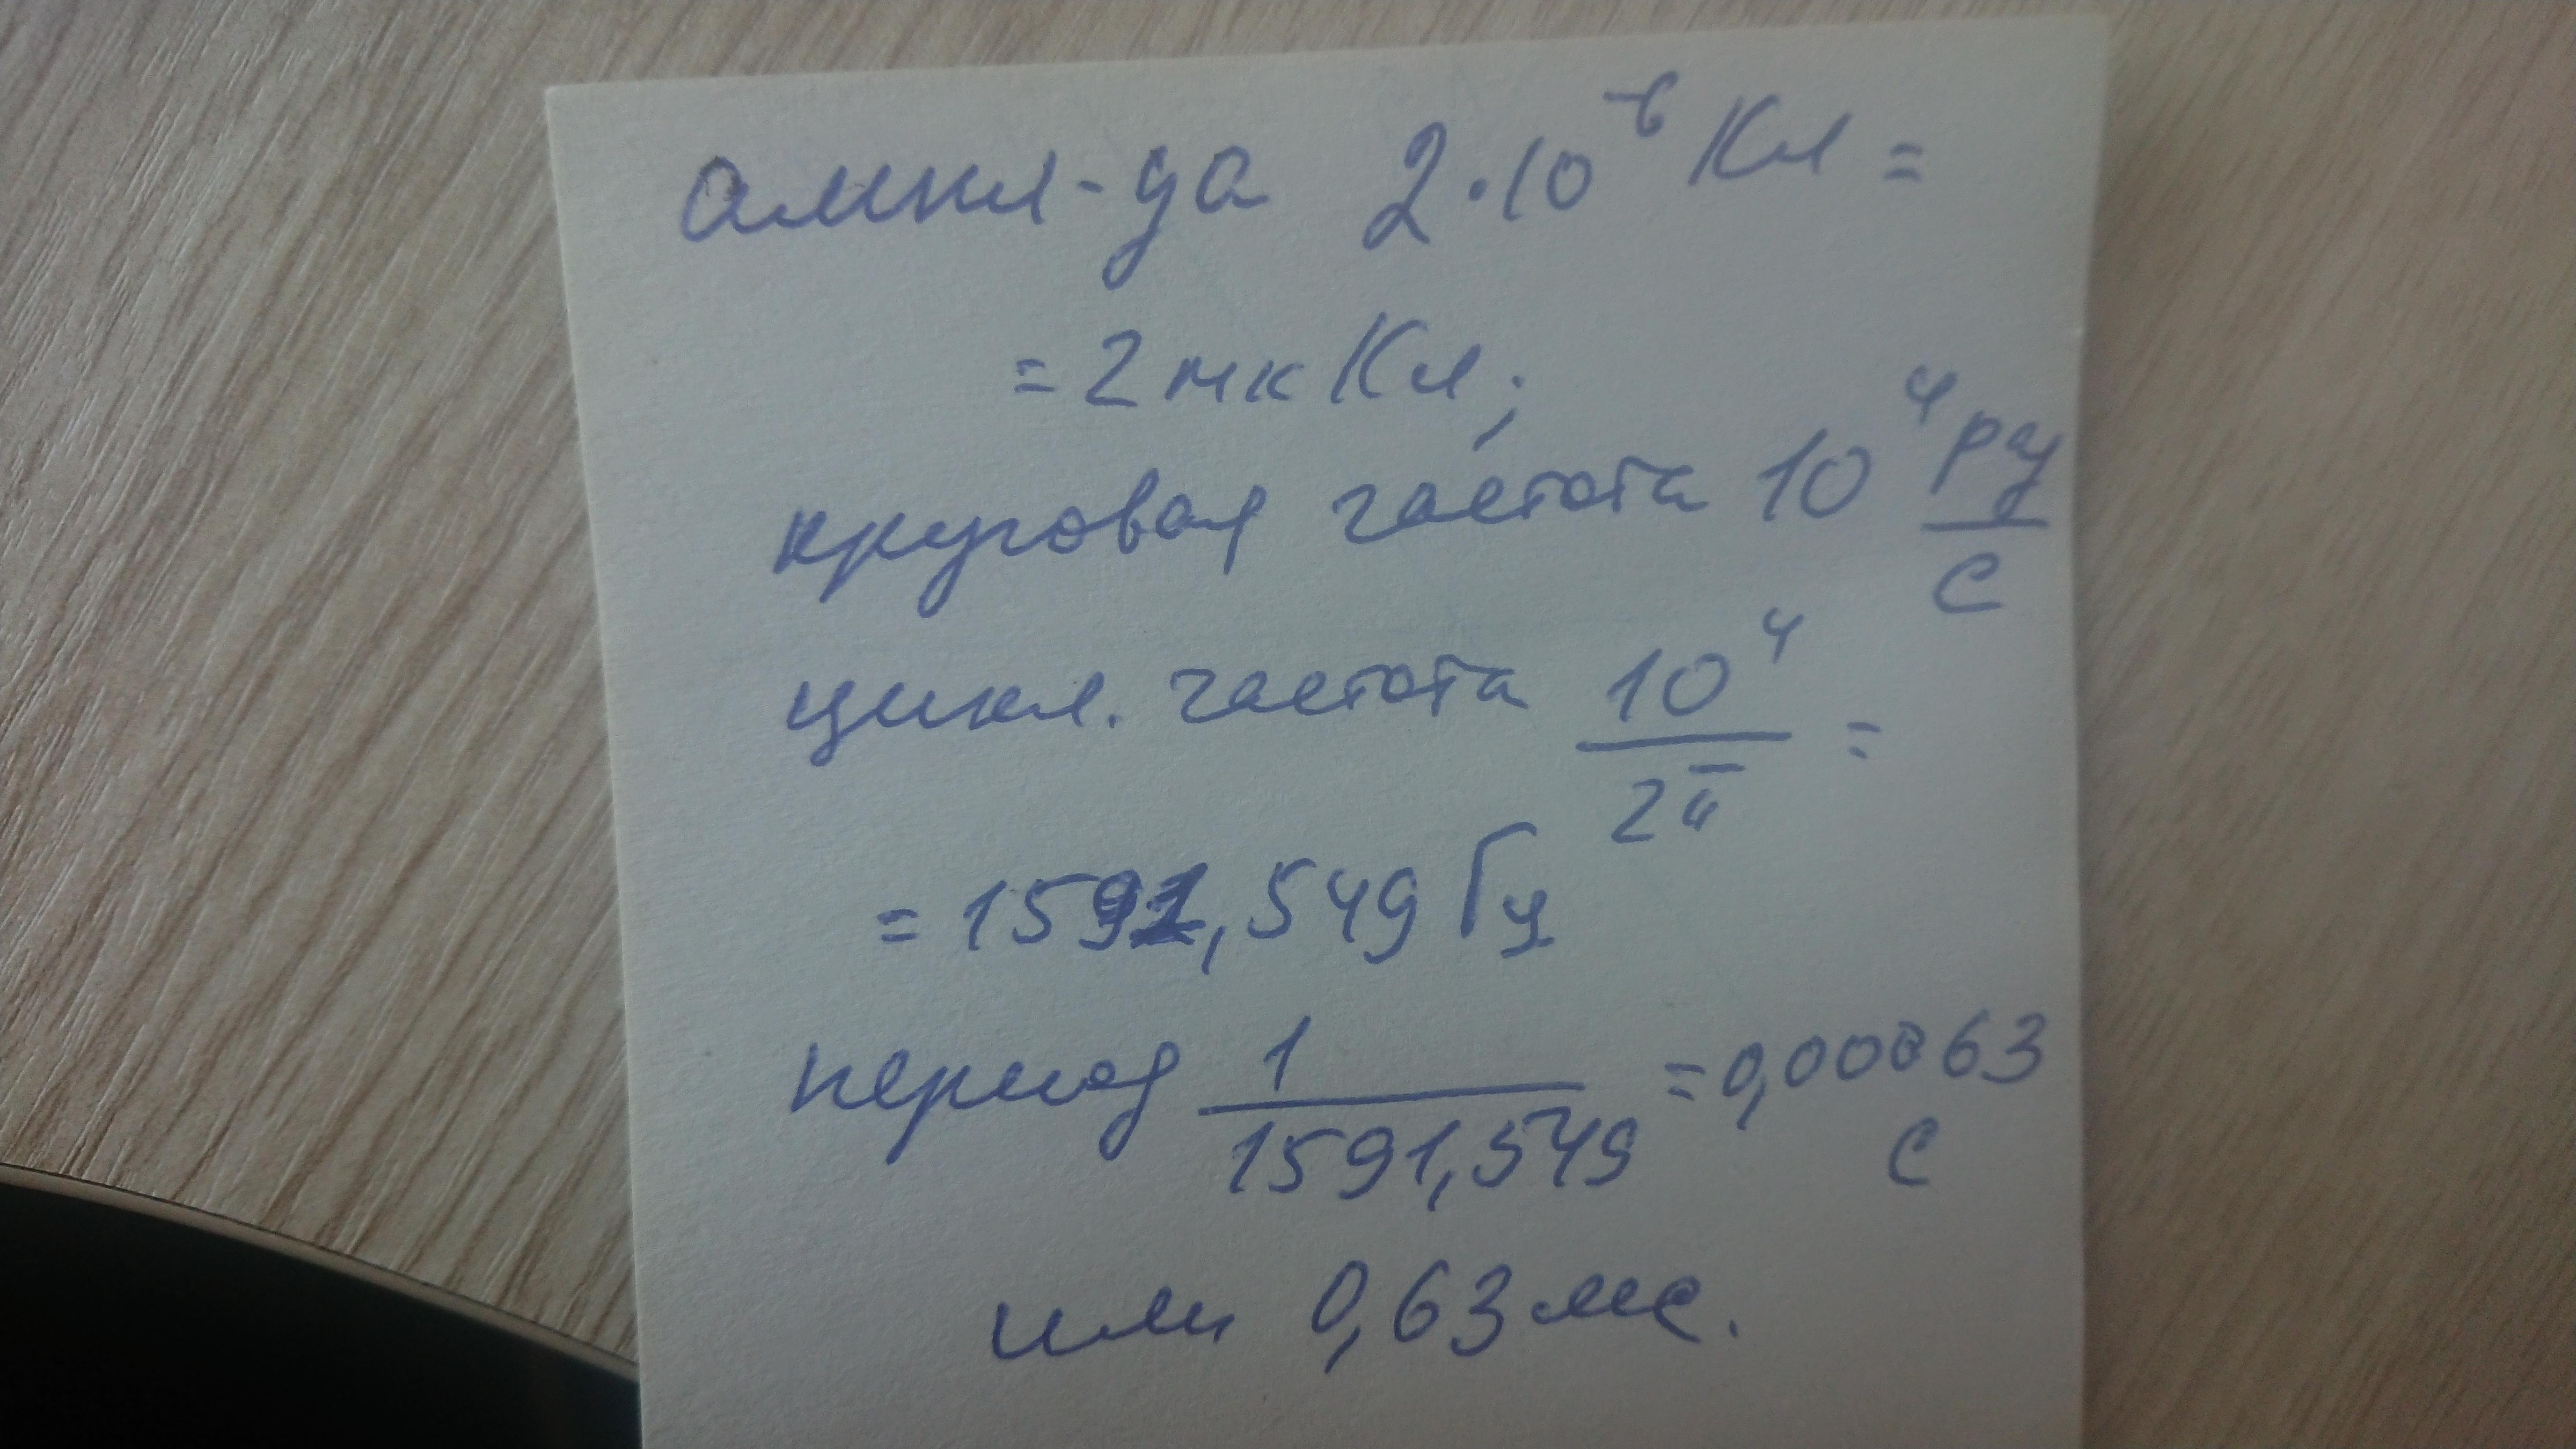 ампл-да 2·10⁻⁶ Кл =
= 2 мкКл;
круговая частота 10⁴ рад/с
цикл. частота 10⁴/2π =
= 1591,549 Гц
период 1/1591,549 = 0,00063 с
или 0,63 мс.